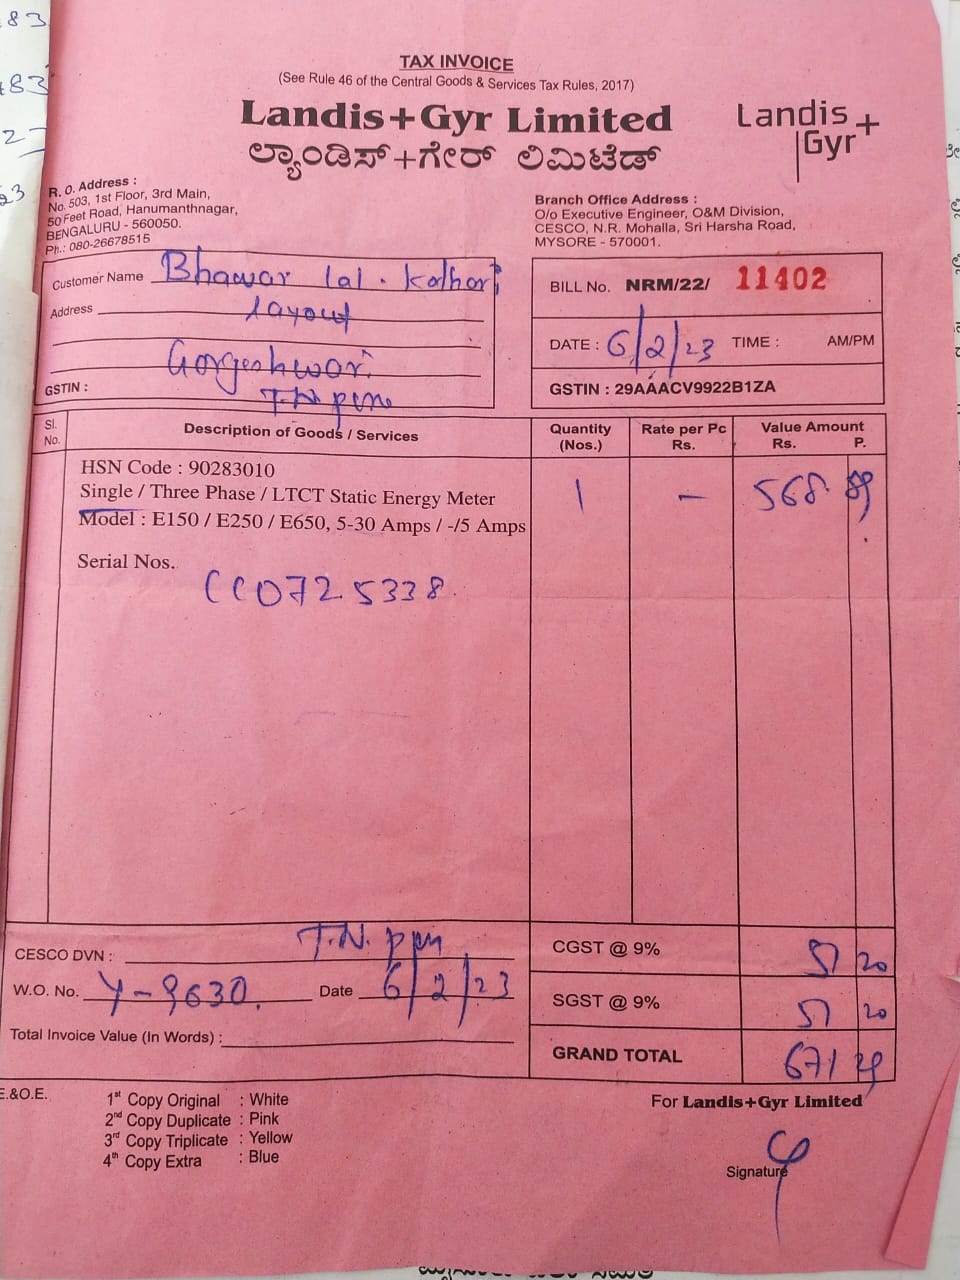 83
83
27
23
TAX INVOICE
(See Rule 46 of the Central Goods & Services Tax Rules, 2017)
Landis+Gyr Limited
ಲ್ಯಾಂಡಿಸ್+ಗೇರ್ ಲಿಮಿಟೆಡ್
Landis+
Gyr
R. O. Address :
No. 503, 1st Floor, 3rd Main,
50 Feet Road, Hanumanthnagar,
BENGALURU - 560050.
Ph.: 080-26678515
Branch Office Address :
O/o Executive Engineer, O&M Division,
CESCO, N.R. Mohalla, Sri Harsha Road,
MYSORE - 570001.
Customer Name Bhawar lal . Kothari
Address layout
Gorgeshwari
GSTIN : T.N.pura
BILL No. NRM/22/ 11402
DATE : 6/2/23 TIME : AM/PM
GSTIN : 29AAACV9922B1ZA
Sl. No. Description of Goods / Services Quantity (Nos.) Rate per Pc Rs. Value Amount Rs. P.
HSN Code : 90283010
Single / Three Phase / LTCT Static Energy Meter 1 - 568 89
Model : E150 / E250 / E650, 5-30 Amps / -/5 Amps
Serial Nos.
CC0725338
CESCO DVN : T.N. pura
W.O. No. Y-9630. Date 6/2/23
Total Invoice Value (In Words) :
CGST @ 9% 51 20
SGST @ 9% 51 20
GRAND TOTAL 671 29
E.&O.E.
1st Copy Original : White
2nd Copy Duplicate : Pink
3rd Copy Triplicate : Yellow
4th Copy Extra : Blue
For Landis+Gyr Limited
Signature